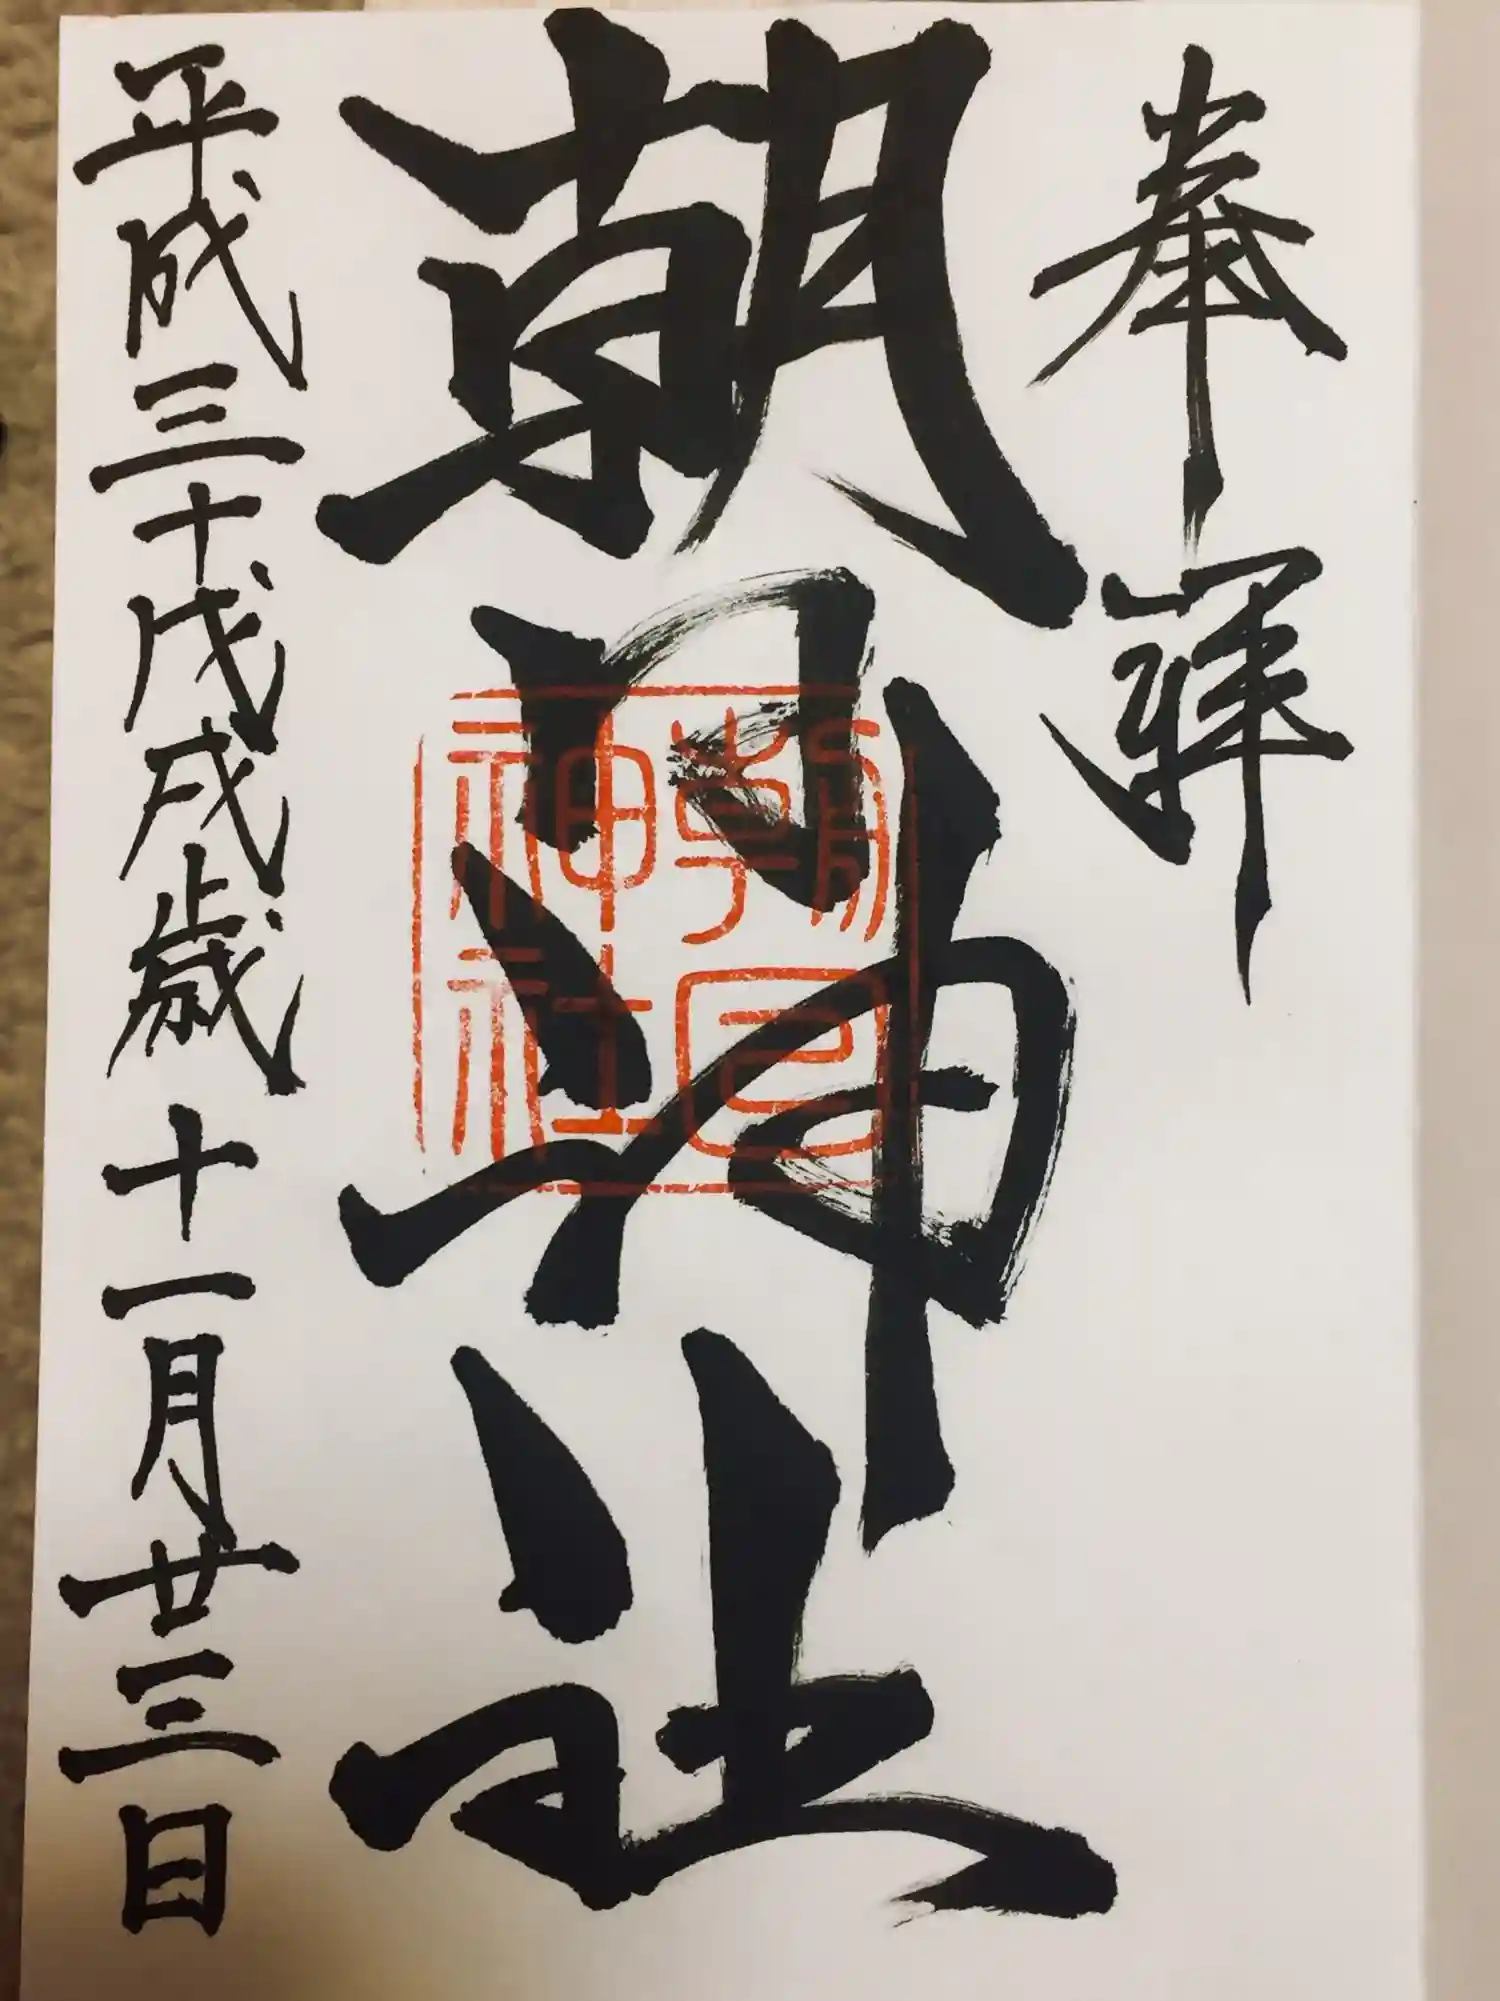 奉拜
朝日神社
朝日神社
平成三十戊戌歳十一月廿三日